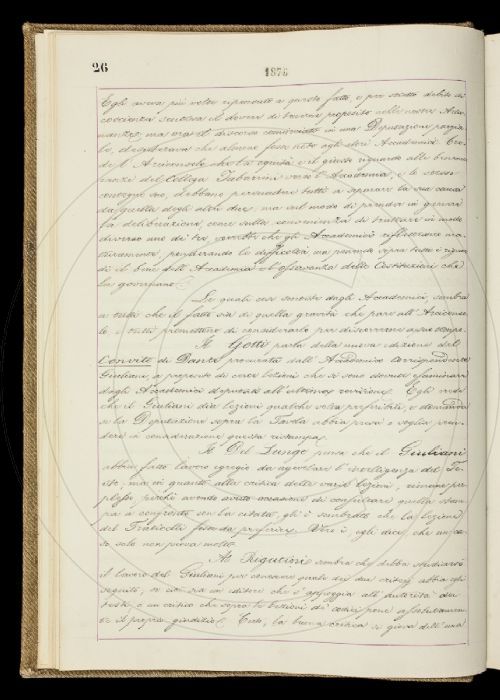 26
1875
Egli aveva più volte ripensato a questo fatto, e per stretto debito di
coscienza sentiva il dovere di tenerne proposito nelle nostre Adu-
nanze; ma ora il discorso cominciato in una Deputazione parzia-
le, desiderava che almeno fosse noto agli altri Accademici. Cre-
de l'Arciconsolo che la equità e il giusto riguardo alle benemer-
enze del Collega Tabarrini verso l'Accademia, e lo stesso
convegno suo, debbano persuadere tutti a separare la sua causa
da quella degli altri due, ma sul modo di prender in genere
la deliberazione, come sulla convenienza di trattare in modo
diverso uno de' tre, vorrebbe che gli Accademici riflettessero ma-
turamente, ponderando le difficoltà ma ponendo sopra tutto i riguar-
di il bene dell'Accademia e l'osservanza delle Costituzioni che
la governano.
Le quali cose sentite dagli Accademici, sembra
a tutti che il fatto sia di quella gravità che pare all'Arciconso-
lo e tutti promettono di considerarlo per discorrerne a suo tempo.
Il Gotti parla della nuova edizione del
Convito di Dante procurata dall'Accademico Corrispondente
Giuliani, a proposito di certe lezioni che si sono dovute esaminare
dagli Accademici deputati all'ultima revisione. Egli crede
che il Giuliani dia lezioni qualche volta preferibili, e domanda
se la Deputazione sopra la Tavola abbia preso o voglia pren-
dere in considerazione questa ristampa.
Il Del Lungo pensa che il Giuliani
abbia fatto lavoro egregio da agevolare l'intelligenza del Te-
sto, ma in quanto alla critica delle varie lezioni, rimane per-
plesso perchè avendo avuto occasione di confrontare quella stam-
pa a confronto con la citata gli è sembrato che la lezione
del Fraticelli fosse da preferirsi. Vero è, egli dice, che un pas-
so solo non prova molto.
Al Rigutini sembra che debba studiarsi
il lavoro del Giuliani per cercare quale dei due criteri abbia egli
seguito, se cioè sia un editore che s'appoggia all'autorità dei
testi, o un critico che sopra le lezioni de' codici pone assolutamen-
te il proprio giudizio. Certo, la buona critica si giova dell'una